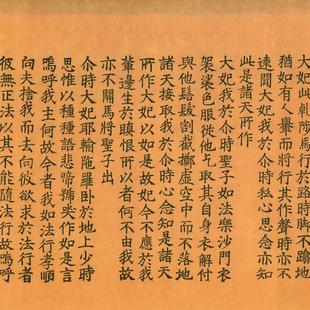 大妃此軋陟馬行於路時脚不蹋地
猶如有人轝而將行其作聲時亦不
遠聞大妃我於尒時私心思念亦知
此是諸天所作
大妃我於尒時聖子如法樂沙門衣
袈裟色服從他乞取其自身衣解付
與他髻髮割截擲虛空中而不落地
諸天接取我於尒時心念知是諸天
所作大妃以是故妃今不應於我
輩邊生於瞋恨所以者何不由我故
亦不關馬將聖子出
尒時大妃耶輸陁羅卧於地上少時
思惟以種種語悲啼號哭作如是言
嗚呼我主何故今者我如法行孝順
向夫捨我而去向彼欲求於法行者
彼無正法以其不能隨法行故嗚呼